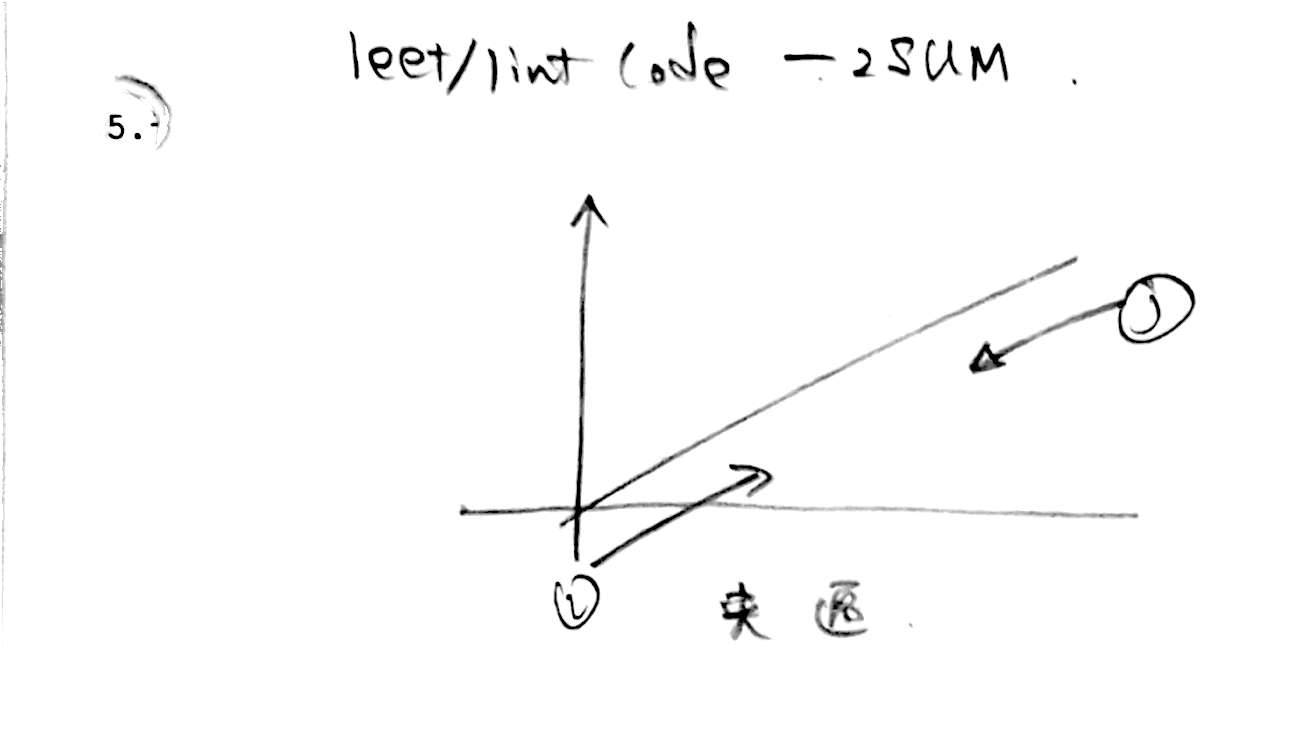 leet/lint Code — 2SUM.
5.
j
i
夹逼.